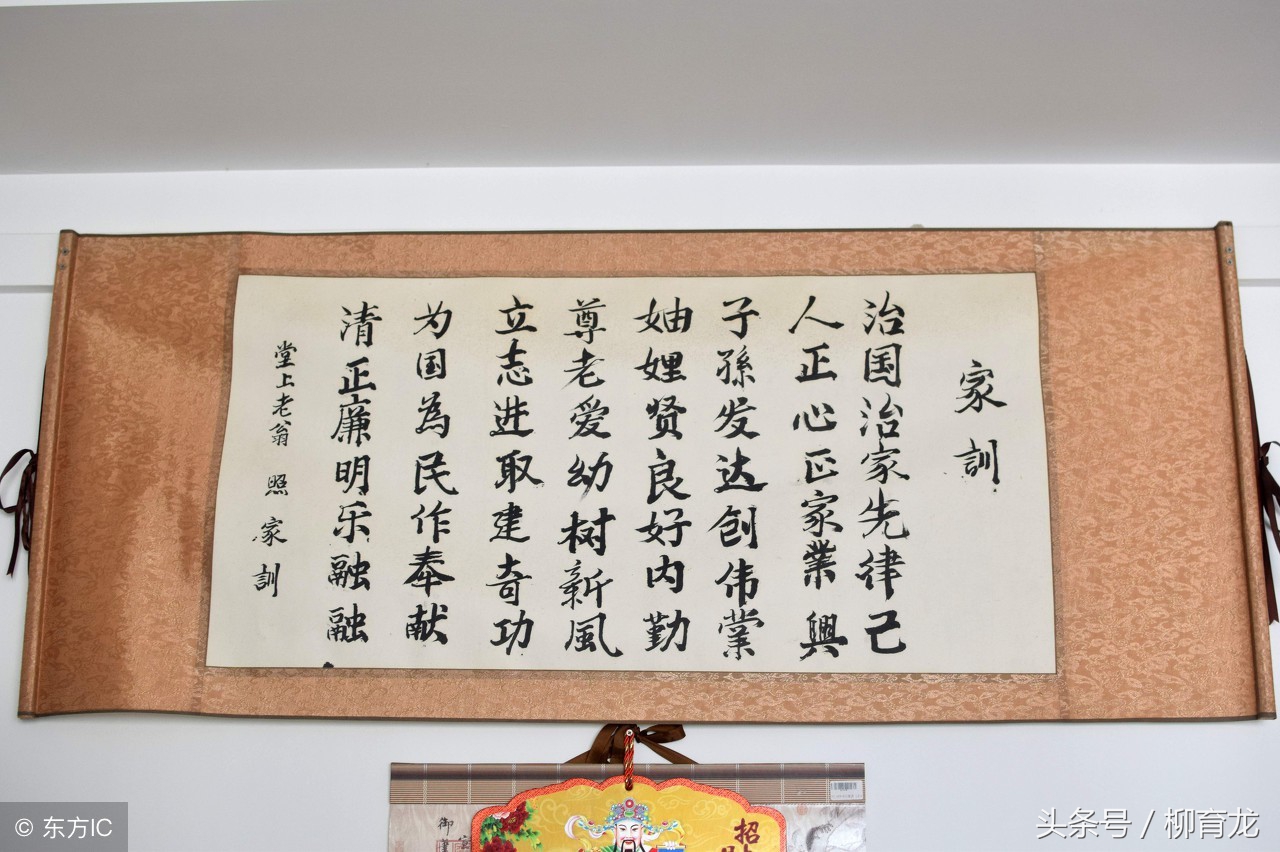 家訓
治国治家先律己
人正心正家業興
子孫发达创伟業
妯娌贤良好内勤
尊老爱幼树新風
立志进取建奇功
为国為民作奉献
清正廉明乐融融
堂上老翁 照 家訓
御
招
© 东方IC
头条号 / 柳育龙